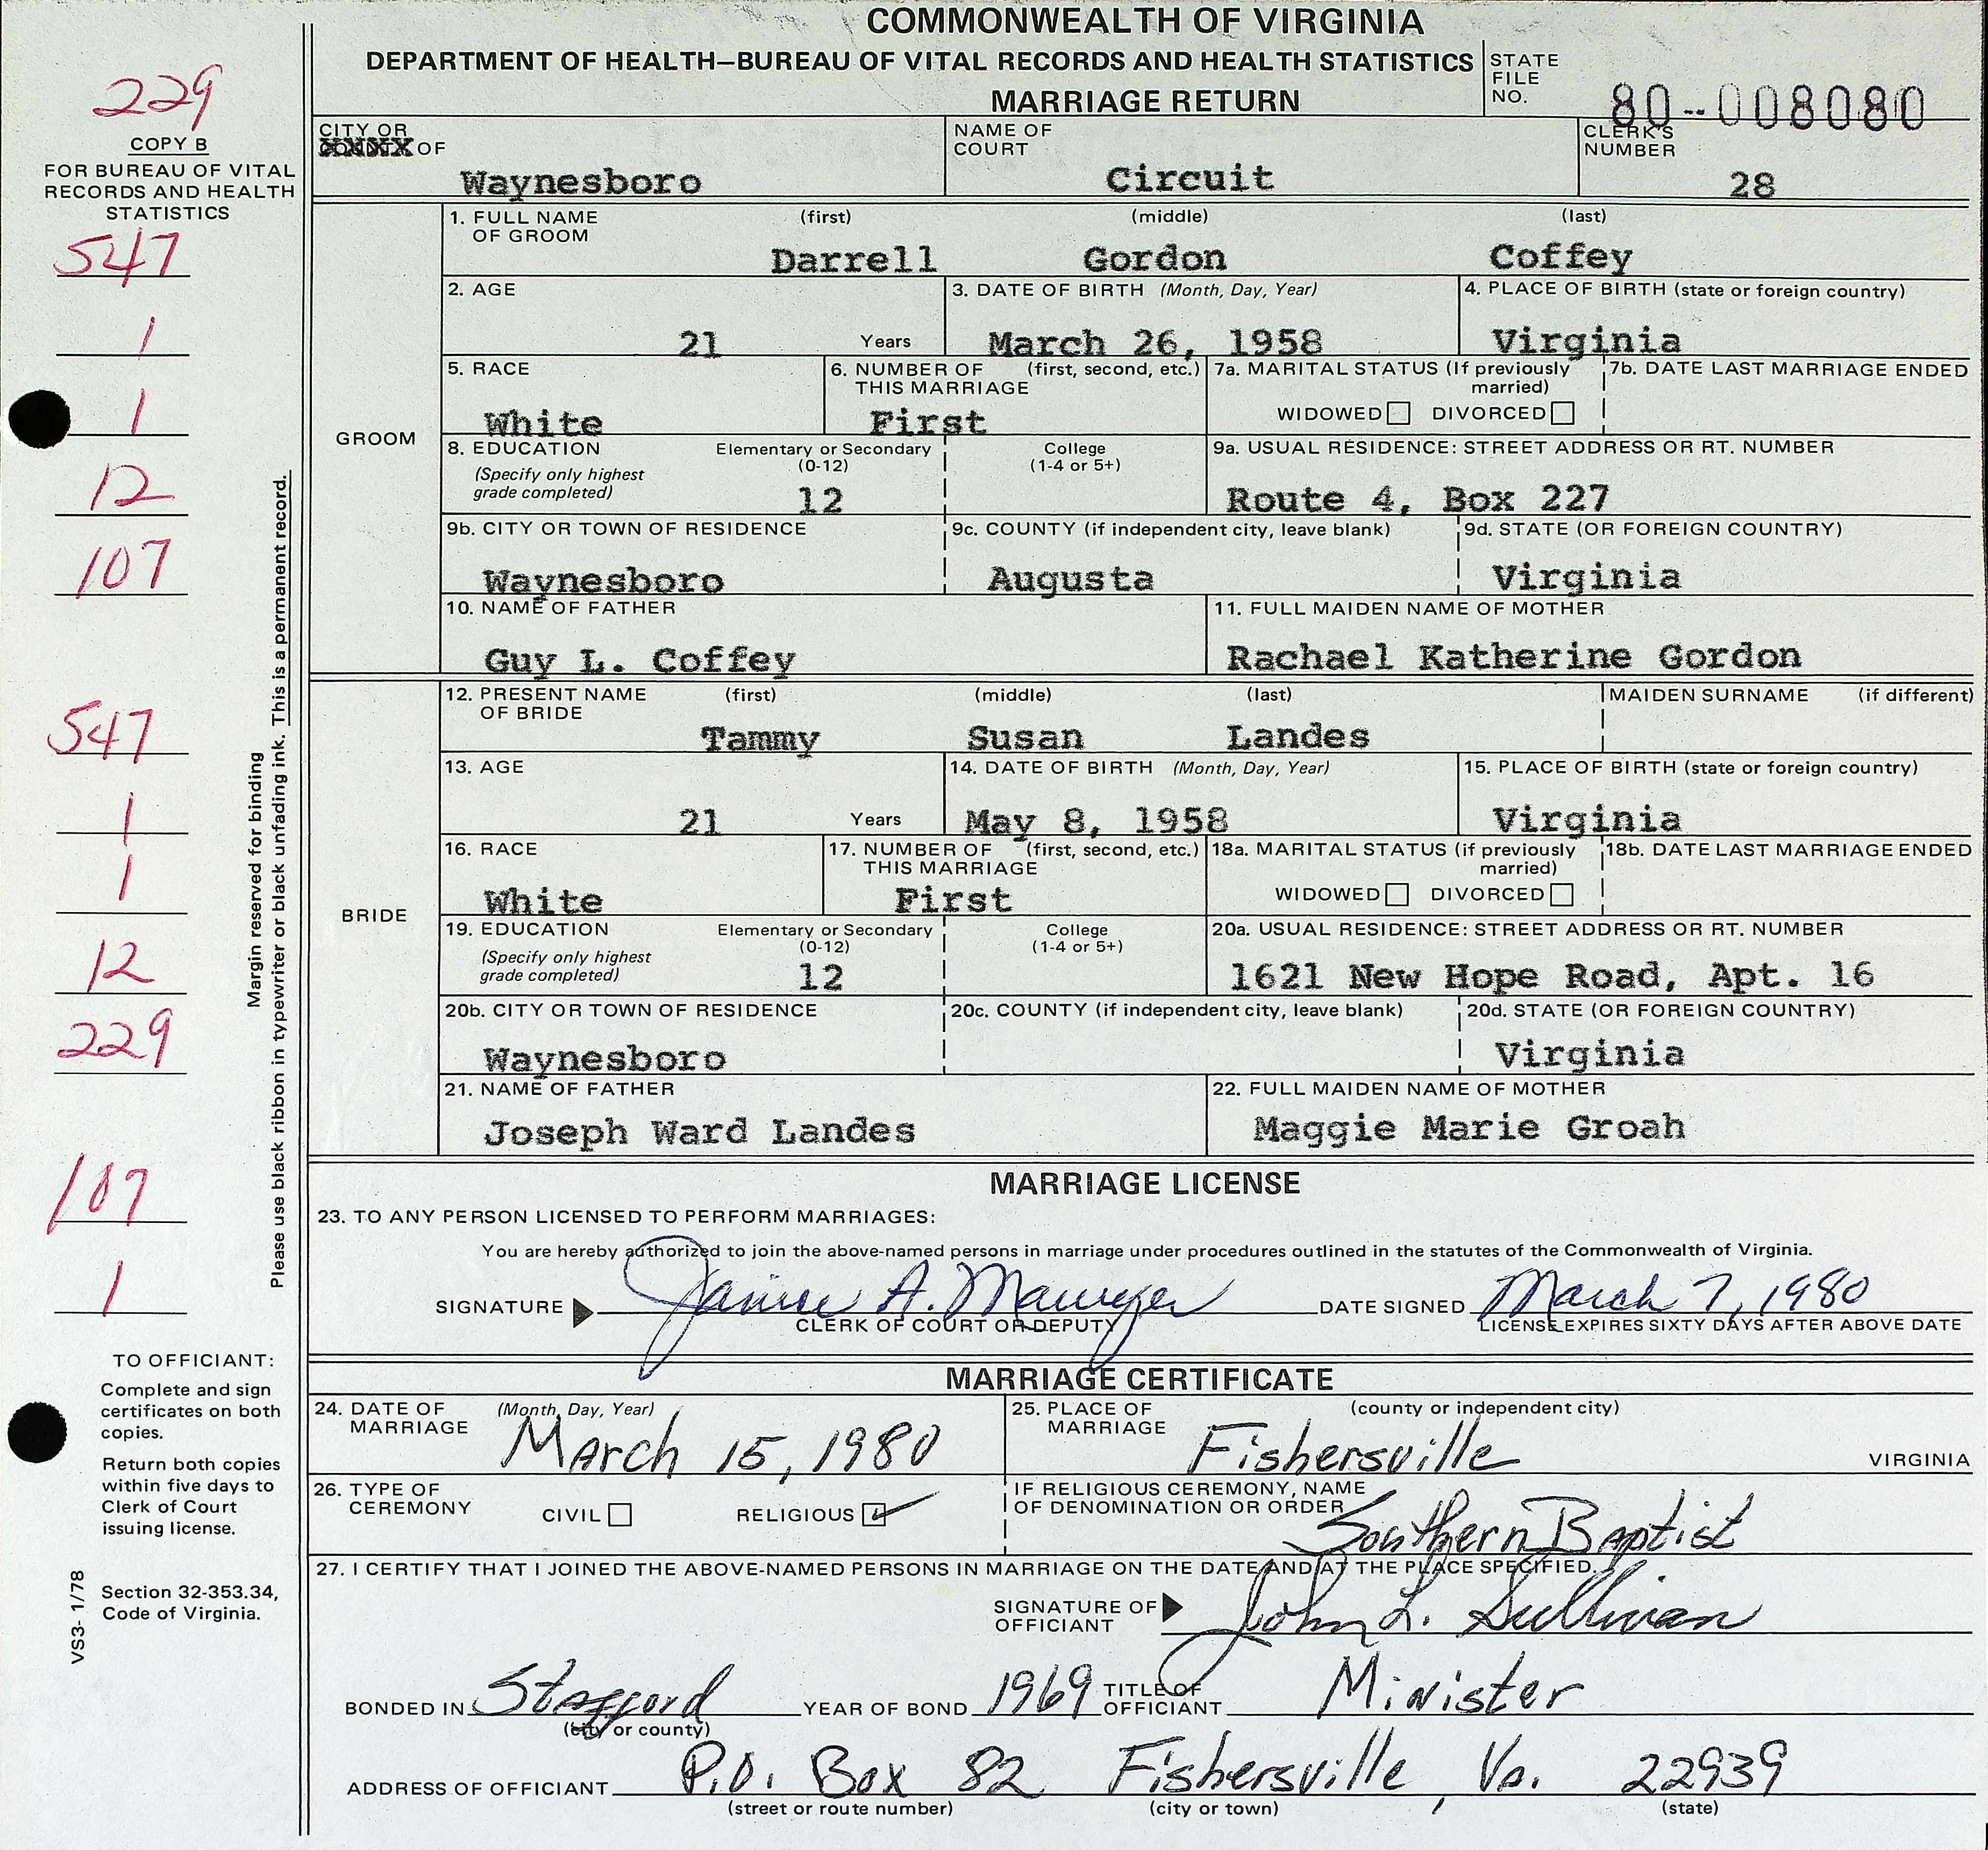 COMMONWEALTH OF VIRGINIA
DEPARTMENT OF HEALTH—BUREAU OF VITAL RECORDS AND HEALTH STATISTICS
MARRIAGE RETURN
STATE FILE NO. 80--008080
229
COPY B
FOR BUREAU OF VITAL
RECORDS AND HEALTH
STATISTICS
CITY OR
XXXXX OF Waynesboro
NAME OF COURT Circuit
CLERK'S NUMBER 28
547
1
1
12
107
547
1
1
12
229
107
1
Margin reserved for binding
Please use black ribbon in typewriter or black unfading ink. This is a permanent record.
GROOM
1. FULL NAME OF GROOM (first) (middle) (last)
Darrell Gordon Coffey
2. AGE 21 Years
3. DATE OF BIRTH (Month, Day, Year) March 26, 1958
4. PLACE OF BIRTH (state or foreign country) Virginia
5. RACE White
6. NUMBER OF THIS MARRIAGE (first, second, etc.) First
7a. MARITAL STATUS (If previously married) WIDOWED DIVORCED
7b. DATE LAST MARRIAGE ENDED
8. EDUCATION (Specify only highest grade completed) Elementary or Secondary (0-12) 12 College (1-4 or 5+)
9a. USUAL RESIDENCE: STREET ADDRESS OR RT. NUMBER Route 4, Box 227
9b. CITY OR TOWN OF RESIDENCE Waynesboro
9c. COUNTY (if independent city, leave blank) Augusta
9d. STATE (OR FOREIGN COUNTRY) Virginia
10. NAME OF FATHER Guy L. Coffey
11. FULL MAIDEN NAME OF MOTHER Rachael Katherine Gordon
BRIDE
12. PRESENT NAME OF BRIDE (first) (middle) (last) MAIDEN SURNAME (if different)
Tammy Susan Landes
13. AGE 21 Years
14. DATE OF BIRTH (Month, Day, Year) May 8, 1958
15. PLACE OF BIRTH (state or foreign country) Virginia
16. RACE White
17. NUMBER OF THIS MARRIAGE (first, second, etc.) First
18a. MARITAL STATUS (if previously married) WIDOWED DIVORCED
18b. DATE LAST MARRIAGE ENDED
19. EDUCATION (Specify only highest grade completed) Elementary or Secondary (0-12) 12 College (1-4 or 5+)
20a. USUAL RESIDENCE: STREET ADDRESS OR RT. NUMBER 1621 New Hope Road, Apt. 16
20b. CITY OR TOWN OF RESIDENCE Waynesboro
20c. COUNTY (if independent city, leave blank)
20d. STATE (OR FOREIGN COUNTRY) Virginia
21. NAME OF FATHER Joseph Ward Landes
22. FULL MAIDEN NAME OF MOTHER Maggie Marie Groah
MARRIAGE LICENSE
23. TO ANY PERSON LICENSED TO PERFORM MARRIAGES:
You are hereby authorized to join the above-named persons in marriage under procedures outlined in the statutes of the Commonwealth of Virginia.
SIGNATURE Janice A. Mawyer DATE SIGNED March 7, 1980
CLERK OF COURT OR DEPUTY LICENSE EXPIRES SIXTY DAYS AFTER ABOVE DATE
TO OFFICIANT:
Complete and sign
certificates on both
copies.
Return both copies
within five days to
Clerk of Court
issuing license.
Section 32-353.34,
Code of Virginia.
VS3- 1/78
MARRIAGE CERTIFICATE
24. DATE OF MARRIAGE (Month, Day, Year) March 15, 1980
25. PLACE OF MARRIAGE (county or independent city) Fishersville VIRGINIA
26. TYPE OF CEREMONY CIVIL RELIGIOUS
IF RELIGIOUS CEREMONY, NAME OF DENOMINATION OR ORDER Southern Baptist
27. I CERTIFY THAT I JOINED THE ABOVE-NAMED PERSONS IN MARRIAGE ON THE DATE AND AT THE PLACE SPECIFIED.
SIGNATURE OF OFFICIANT John L. Sullivan
BONDED IN Stafford YEAR OF BOND 1969 TITLE OF OFFICIANT Minister
(city or county)
ADDRESS OF OFFICIANT P.O. Box 82 Fishersville, Va. 22939
(street or route number) (city or town) (state)